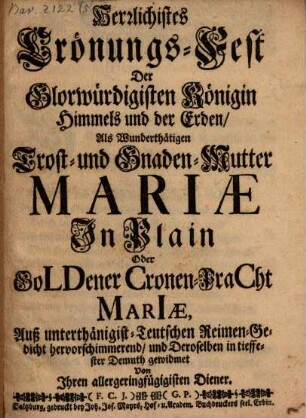 Bav. 2122 (5
Herrlichistes
Crönungs-Fest
Der
Glorwürdigisten Königin
Himmels und der Erden/
Als Wunderthätigen
Trost- und Gnaden-Mutter
MARIÆ
In Plain
Oder
GoLDener Cronen-PraCht
MARIæ,
Auß unterthänigist-Teutschen Reimen-Ge-
dicht hervorschimmerend/ und Deroselben in tieffe-
ster Demuth gewidmet
Von
Ihren allergeringfügigisten Diener.
( F. C. J. G. P. )
Saltzburg, gedruckt bey Joh. Jos. Mayrs, Hof- u. Academ. Buchdruckers sel. Erbin.